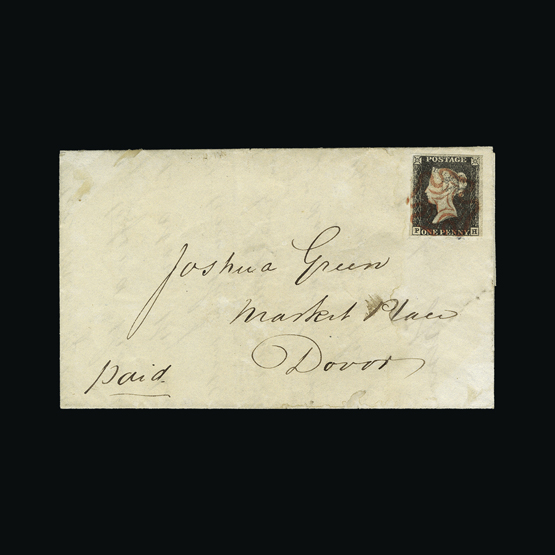 POSTAGE
P ONE PENNY H
Joshua Green
Market Place
Dovor
paid